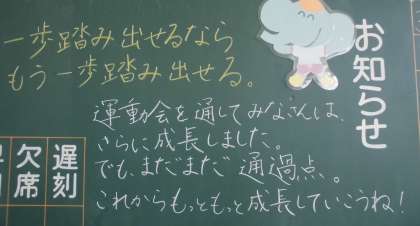 お知らせ
一歩踏み出せるなら
もう一歩踏み出せる。
運動会を通してみなさんは、
さらに成長しました。
でも、まだまだ通過点、
これからもっともっと成長していこうね!
遅刻
欠席